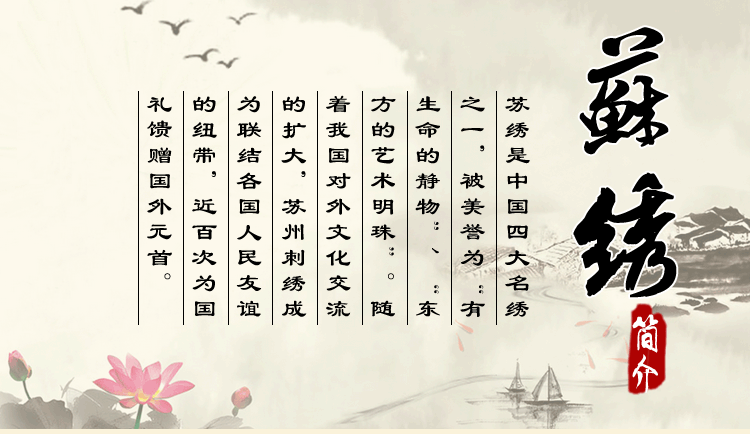 蘇绣
简介
苏绣是中国四大名绣
之一，被美誉为“有
生命的静物”、“东
方的艺术明珠”。随
着我国对外文化交流
的扩大，苏州刺绣成
为联结各国人民友谊
的纽带，近百次为国
礼馈赠国外元首。